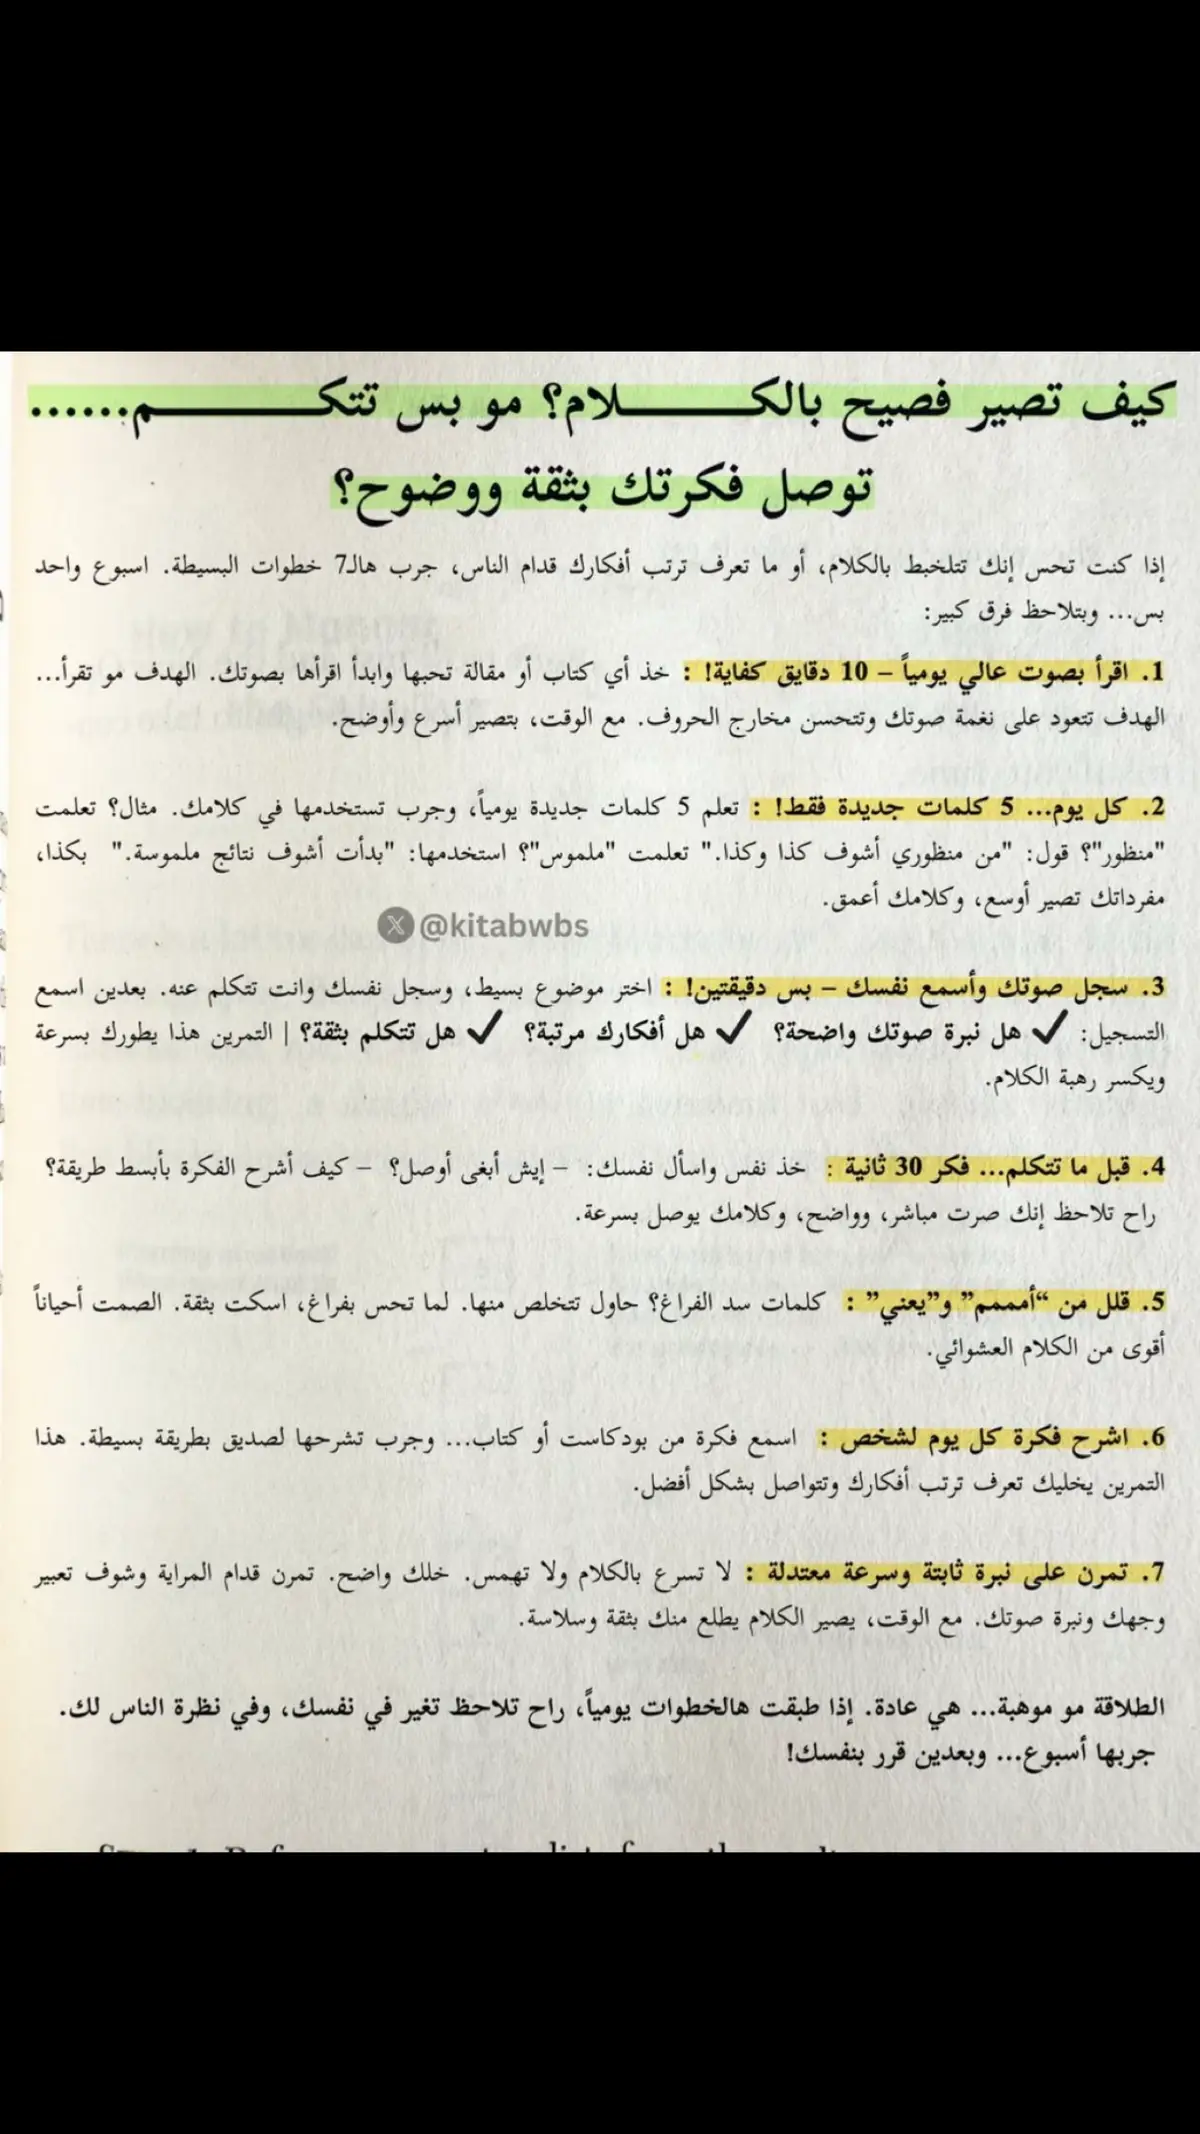 كيف تصير فصيح بالكـــــــلام؟ مو بس تتكـــــــــــم......
توصل فكرتك بثقة ووضوح؟
إذا كنت تحس إنك تتلخبط بالكلام، أو ما تعرف ترتب أفكارك قدام الناس، جرب هالـ7 خطوات البسيطة. اسبوع واحد
بس... وبتلاحظ فرق كبير:
1. اقرأ بصوت عالي يومياً – 10 دقايق كفاية! : خذ أي كتاب أو مقالة تحبها وابدأ اقرأها بصوتك. الهدف مو تقرأ...
الهدف تتعود على نغمة صوتك وتتحسن مخارج الحروف. مع الوقت، بتصير أسرع وأوضح.
2. كل يوم... 5 كلمات جديدة فقط! : تعلم 5 كلمات جديدة يومياً، وجرب تستخدمها في كلامك. مثال؟ تعلمت
"منظور"؟ قول: "من منظوري أشوف كذا وكذا." تعلمت "ملموس"؟ استخدمها: "بدأت أشوف نتائج ملموسة." بكذا،
مفرداتك تصير أوسع، وكلامك أعمق.
@kitabwbs
3. سجل صوتك وأسمع نفسك – بس دقيقتين! : اختر موضوع بسيط، وسجل نفسك وانت تتكلم عنه. بعدين اسمع
التسجيل: ✔ هل نبرة صوتك واضحة؟ ✔ هل أفكارك مرتبة؟ ✔ هل تتكلم بثقة؟ | التمرين هذا يطورك بسرعة
ويكسر رهبة الكلام.
4. قبل ما تتكلم... فكر 30 ثانية : خذ نفس واسأل نفسك: – إيش أبغى أوصل؟ – كيف أشرح الفكرة بأبسط طريقة؟
راح تلاحظ إنك صرت مباشر، وواضح، وكلامك يوصل بسرعة.
5. قلل من “أمممم” و”يعني” : كلمات سد الفراغ؟ حاول تتخلص منها. لما تحس بفراغ، اسكت بثقة. الصمت أحياناً
أقوى من الكلام العشوائي.
6. اشرح فكرة كل يوم لشخص : اسمع فكرة من بودكاست أو كتاب... وجرب تشرحها لصديق بطريقة بسيطة. هذا
التمرين يخليك تعرف ترتب أفكارك وتتواصل بشكل أفضل.
7. تمرن على نبرة ثابتة وسرعة معتدلة : لا تسرع بالكلام ولا تهمس. خلك واضح. تمرن قدام المراية وشوف تعبير
وجهك ونبرة صوتك. مع الوقت، يصير الكلام يطلع منك بثقة وسلاسة.
الطلاقة مو موهبة... هي عادة. إذا طبقت هالخطوات يومياً، راح تلاحظ تغير في نفسك، وفي نظرة الناس لك.
جربها أسبوع... وبعدين قرر بنفسك!